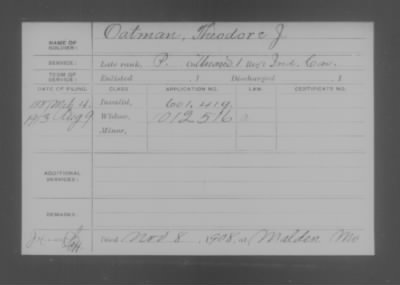 NAME OF SOLDIER: Oatman, Theodore J.
SERVICE: Late rank, P. 1 Ind. Cav.
TERM OF SERVICE: Enlisted , 1 Discharged , 1
DATE OF FILING. CLASS. APPLICATION NO. LAW. CERTIFICATE NO.
Invalid, 601.419
1913 Aug 9 Widow, 1012516
Minor,
ADDITIONAL SERVICES:
REMARKS:
Died Nov 8, 1908, at Malden Mo